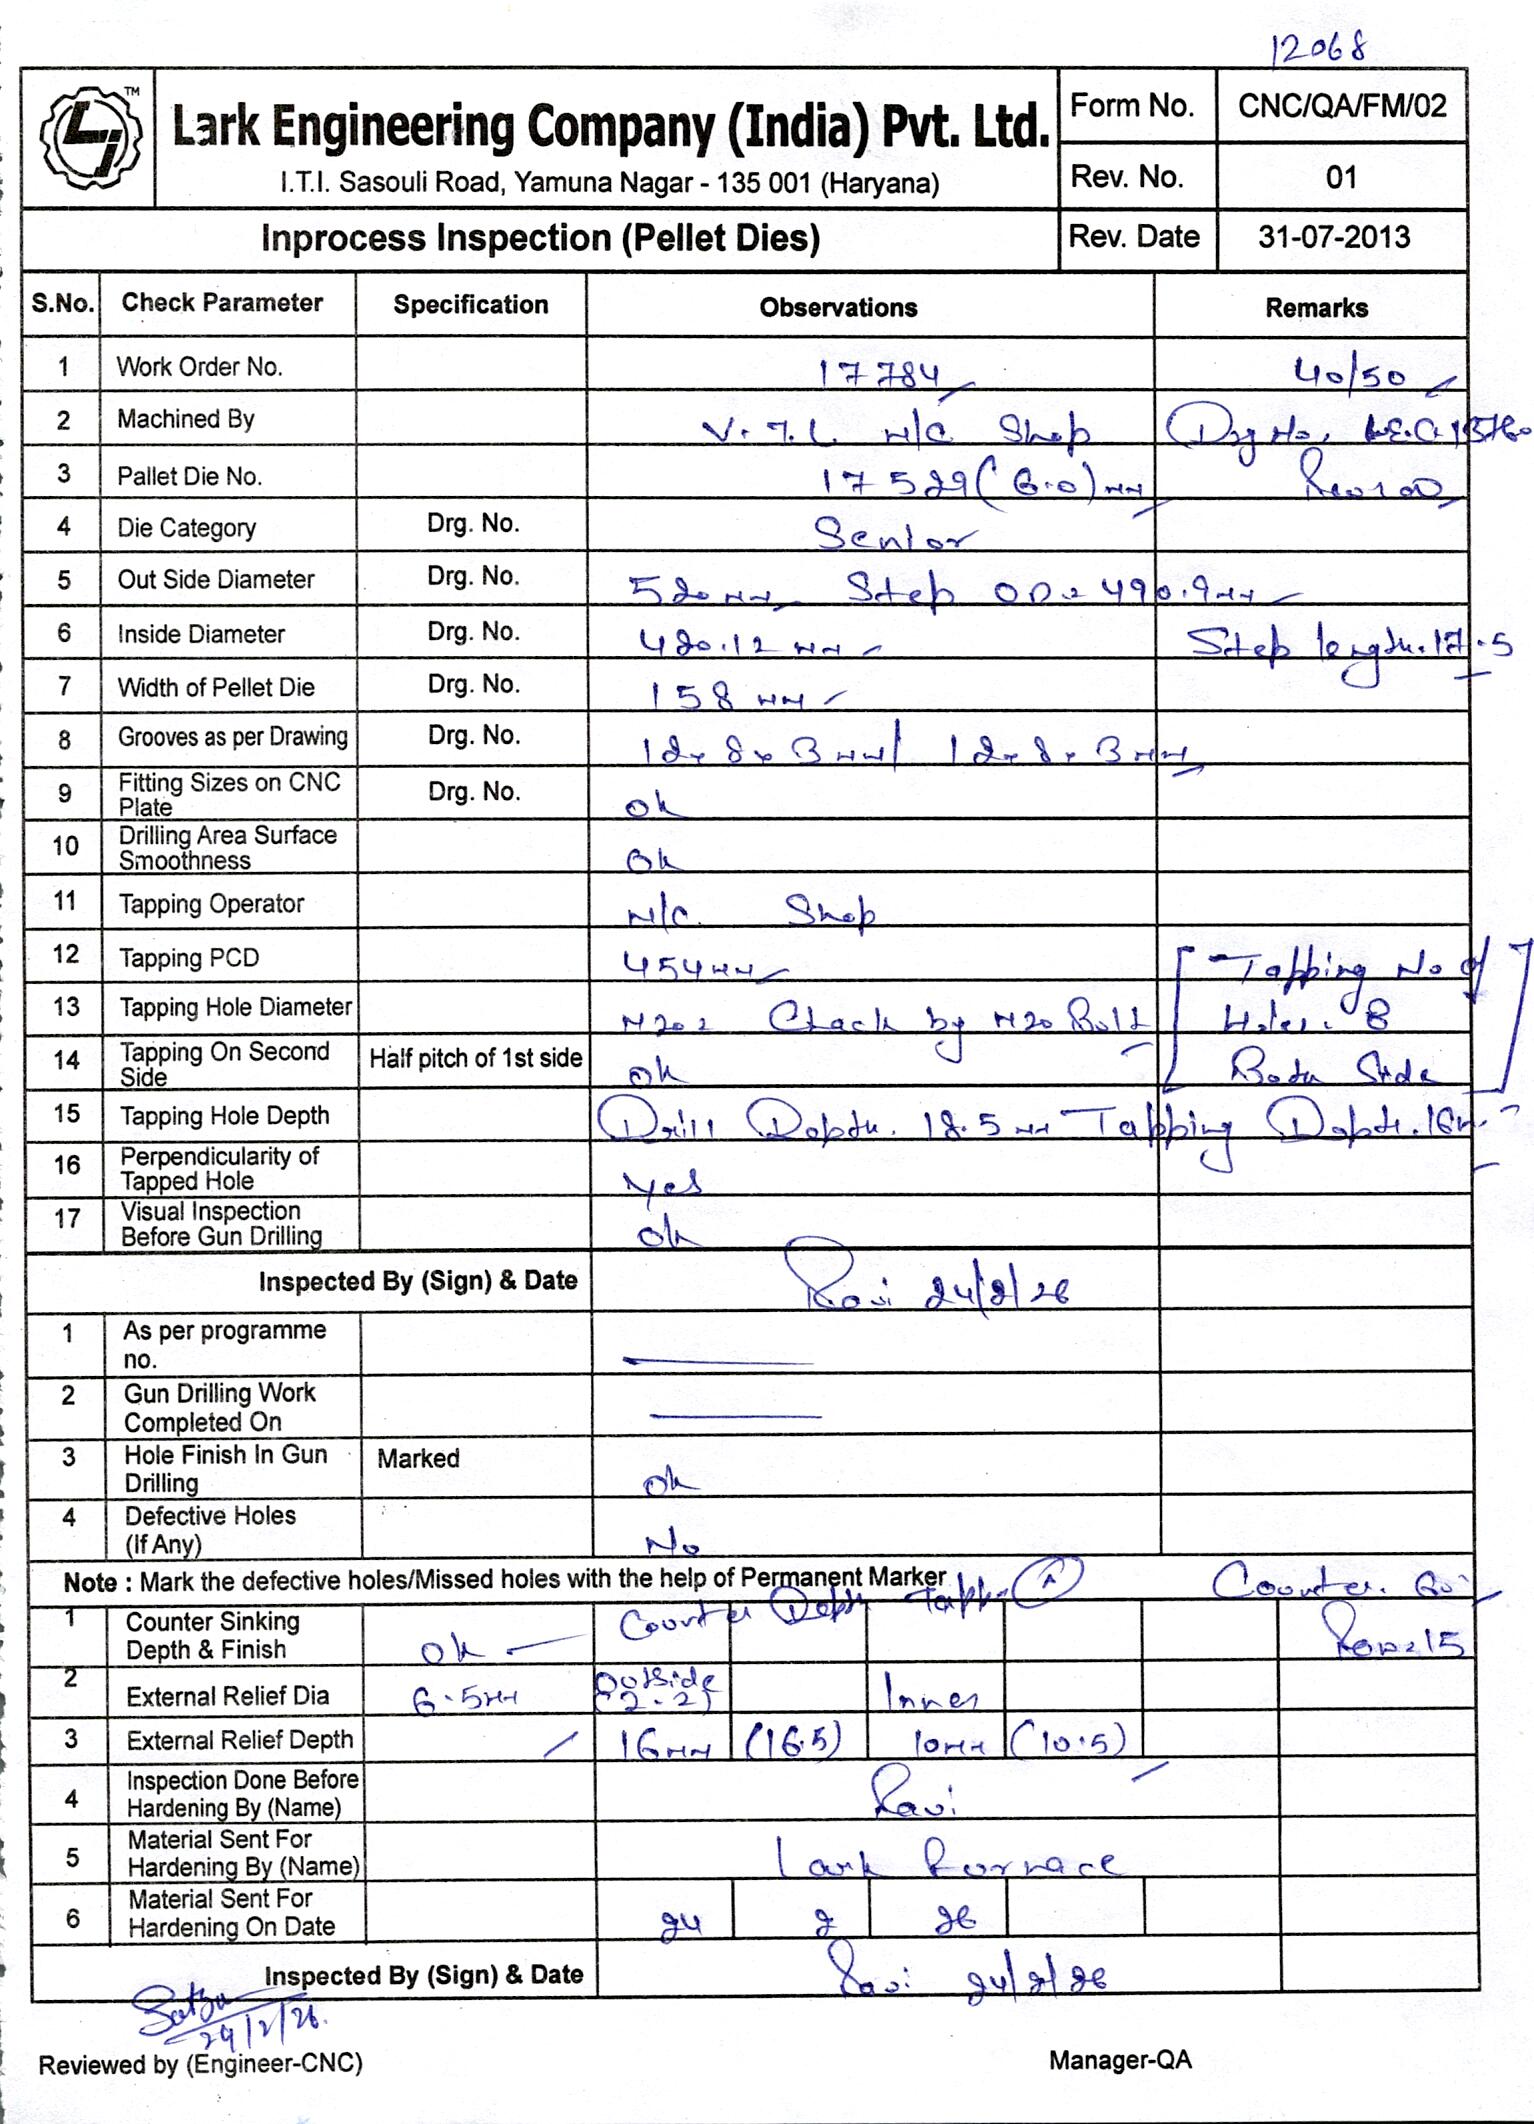 12068
TM
Lark Engineering Company (India) Pvt. Ltd.
I.T.I. Sasouli Road, Yamuna Nagar - 135 001 (Haryana)
Form No. CNC/QA/FM/02
Rev. No. 01
Inprocess Inspection (Pellet Dies) Rev. Date 31-07-2013
S.No. Check Parameter Specification Observations Remarks
1 Work Order No. 17784 40/50
2 Machined By V.T.L M/C Shop Drg No.
3 Pallet Die No. 17529 (6.0) mm
4 Die Category Drg. No. Senior
5 Out Side Diameter Drg. No. 520 mm Step OD = 490.9 mm
6 Inside Diameter Drg. No. 420.12 mm Step length. 17.5
7 Width of Pellet Die Drg. No. 158 mm
8 Grooves as per Drawing Drg. No. 12x8x3 mm / 12x8x3 mm
9 Fitting Sizes on CNC Plate Drg. No. ok
10 Drilling Area Surface Smoothness ok
11 Tapping Operator M/C Shop
12 Tapping PCD 454 mm Tapping No of
13 Tapping Hole Diameter M20 = Chack by M20 Bolt Holes. 8
14 Tapping On Second Side Half pitch of 1st side ok Both Side
15 Tapping Hole Depth Drill Depth. 18.5 mm Tapping Depth. 16
16 Perpendicularity of Tapped Hole Yes
17 Visual Inspection Before Gun Drilling ok
Inspected By (Sign) & Date Ravi 24/2/26
1 As per programme no.
2 Gun Drilling Work Completed On
3 Hole Finish In Gun Drilling Marked ok
4 Defective Holes (If Any) No
Note : Mark the defective holes/Missed holes with the help of Permanent Marker
Counter Depth A Counter. 60°
1 Counter Sinking Depth & Finish ok Row = 15
2 External Relief Dia 6.5 mm Outside Inner
3 External Relief Depth 16 mm (16.5) 10 mm (10.5)
4 Inspection Done Before Hardening By (Name) Ravi
5 Material Sent For Hardening By (Name) Lark Furnace
6 Material Sent For Hardening On Date 24 2 26
Inspected By (Sign) & Date Ravi 24/2/26
24/2/26.
Reviewed by (Engineer-CNC) Manager-QA